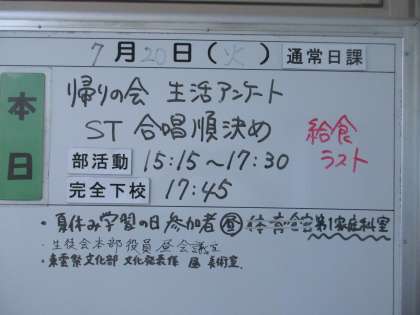 7月20日(火) 通常日課
本日
帰りの会 生活アンケート
ST 合唱順決め
給食
ラスト
部活動 15:15〜17:30
完全下校 17:45
・夏休み学習の日参加者 昼 体育館 第1家庭科室
・生徒会本部役員 昼 会議室
・東雲祭文化部 文化発表係 昼 美術室